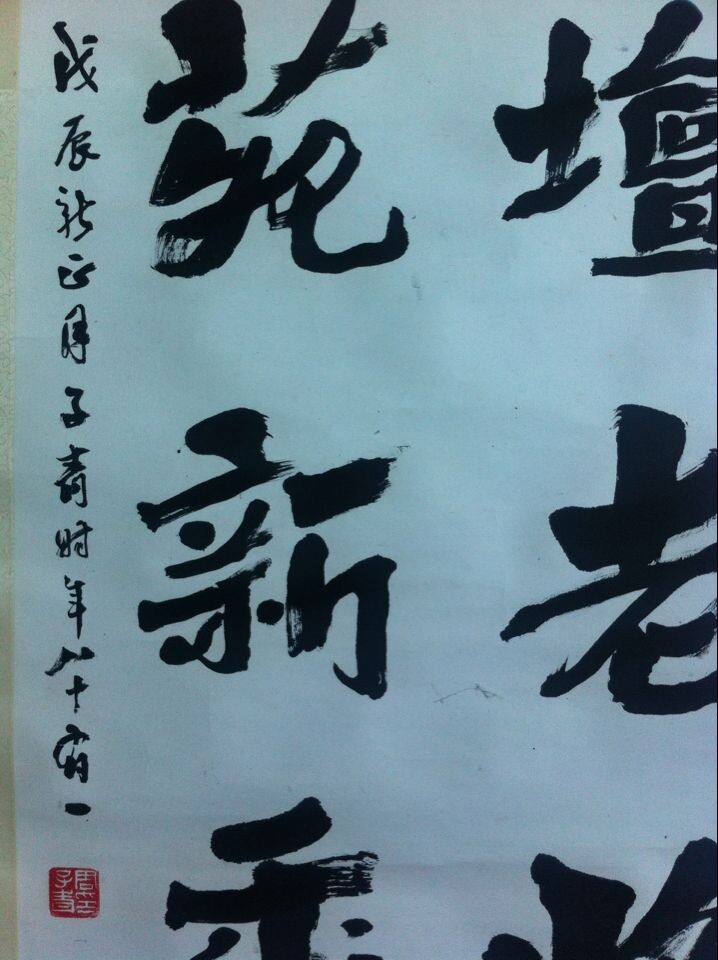 壇老
苑新
戊辰新正月子青时年八十有一